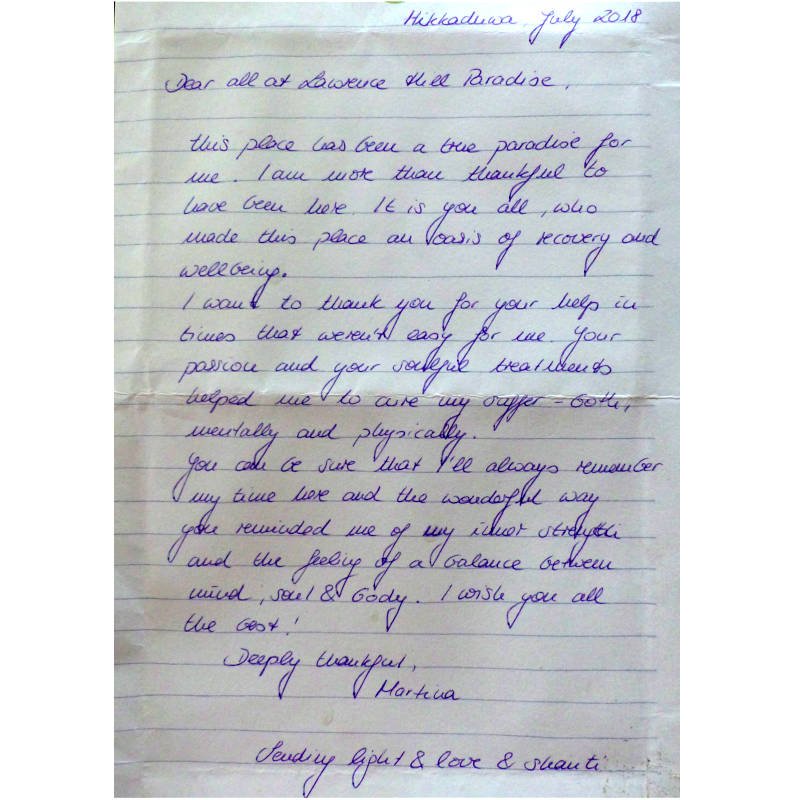 Hikkaduwa, July 2018
Dear all at Lawrence Hill Paradise,
this place has been a true paradise for
me. I am more than thankful to
have been here. It is you all, who
made this place an oasis of recovery and
wellbeing.
I want to thank you for your help in
times that weren't easy for me. Your
passion and your soulful treatments
helped me to cure my suffer - both,
mentally and physically.
You can be sure that I'll always remember
my time here and the wonderful way
you reminded me of my inner strength
and the feeling of a balance between
mind, soul & body. I wish you all
the best!
Deeply thankful,
Martina
Sending light & love & shanti